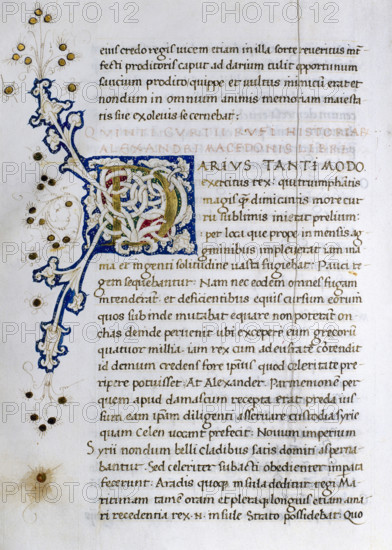 eius credo regis vicem etiam in illa sorte reveritus
proditoris caput ad darium tulit opportunum
saucium prodito quippe et vultus inimicum erat et
nondum in omnium animis memoriam maiesta
tis sue exolevisse cernebat:
QUINTI CURTII RUFI HISTORIA
ALEXANDRI MACEDONIS LIBRI
DARIUS TANTI MODO
exercitus rex: qui triumphantis
magis q̄ dimicantis more cur
ru sublimis inierat prelium:
per loca que prope inmensis ag
minibus impleverat iam ina
nia et ingenti solitudine vasta fugiebat: Pauci re
gem sequebantur: Nam nec eodem omnes fugam
intenderant et deficientibus equis cursum eorum
quos subinde mutabat equare non poterant
chas deinde pervenit ubi excepere eum grecorum
quatuor millia: iam rex cum ad eufratem contendit
id demum credens fore ipsius quod celeritate pre
ripere potuisset: At Alexander: Parmenionem per
quem apud damascum recepta erat preda ius
sum eam ipsam diligenti asservare custodia syrie
quam Celen vocant prefecit: Novum imperium
Syrii nondum belli cladibus satis domiti asperna
bantur: Sed celeriter subacti obedienter imperata
fecerunt: Aradis quoque insula deditur regi Ma
ritimam tamen oram et pleraque longius etiam a ma
ri recedentia rex .N. insule Strato possidebat: Quo
PHOTO12